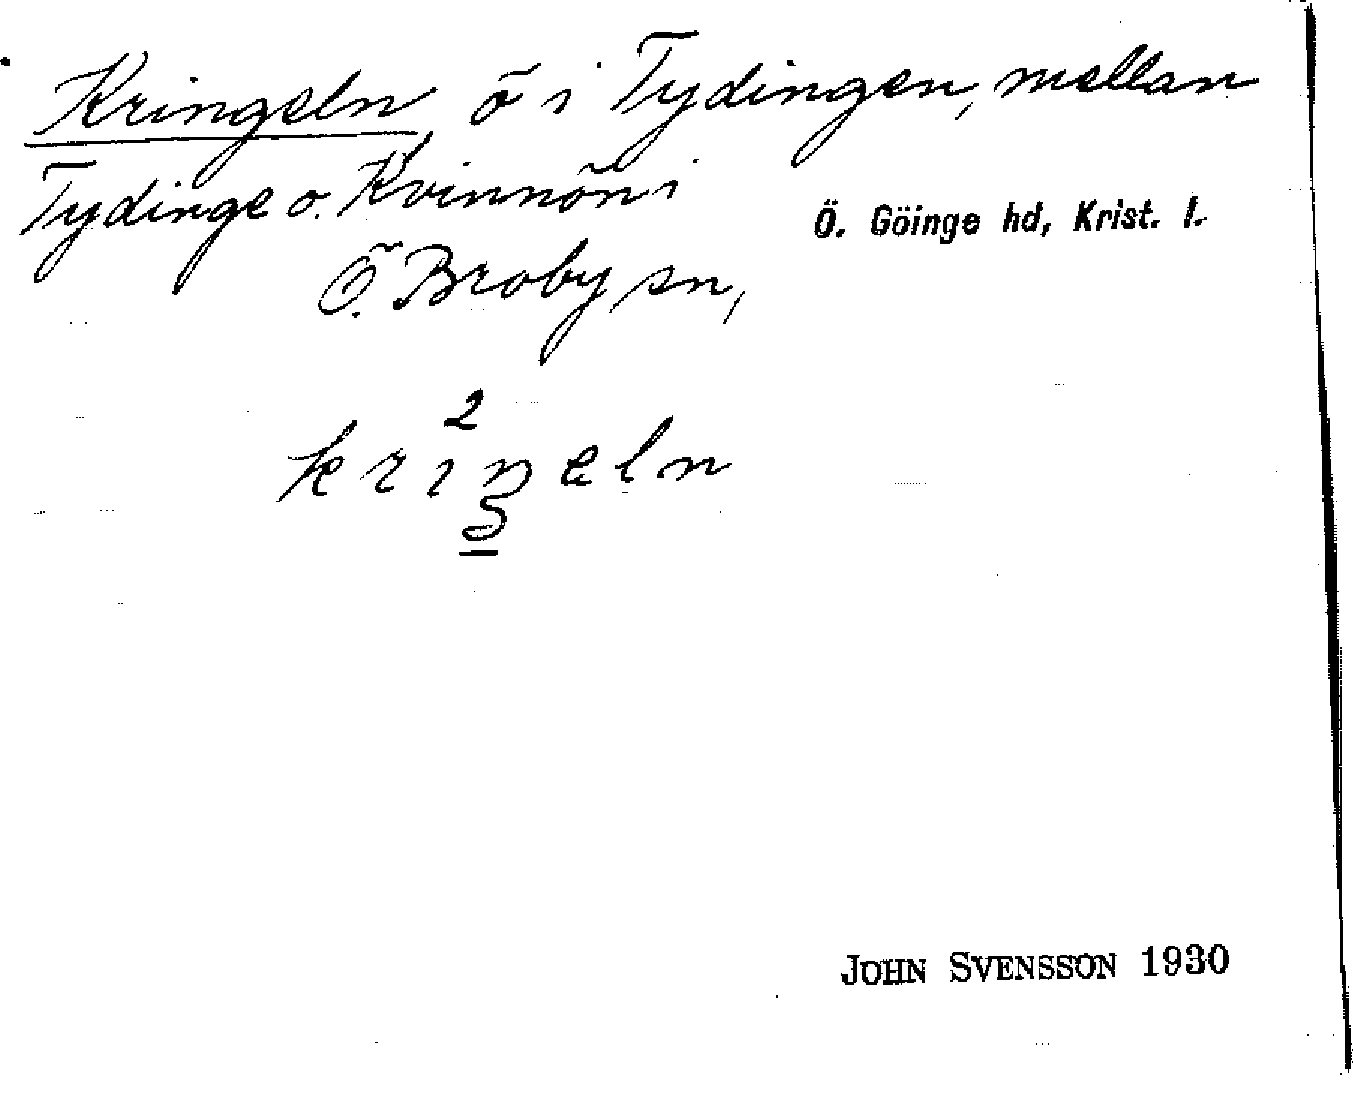 Kringeln, ö i Tydingen, mellan
Tydinge o. Kvinnön i
Ö. Göinge hd, Krist. l.
Ö. Broby sn,
2
kriŋeln
JOHN SVENSSON 1930